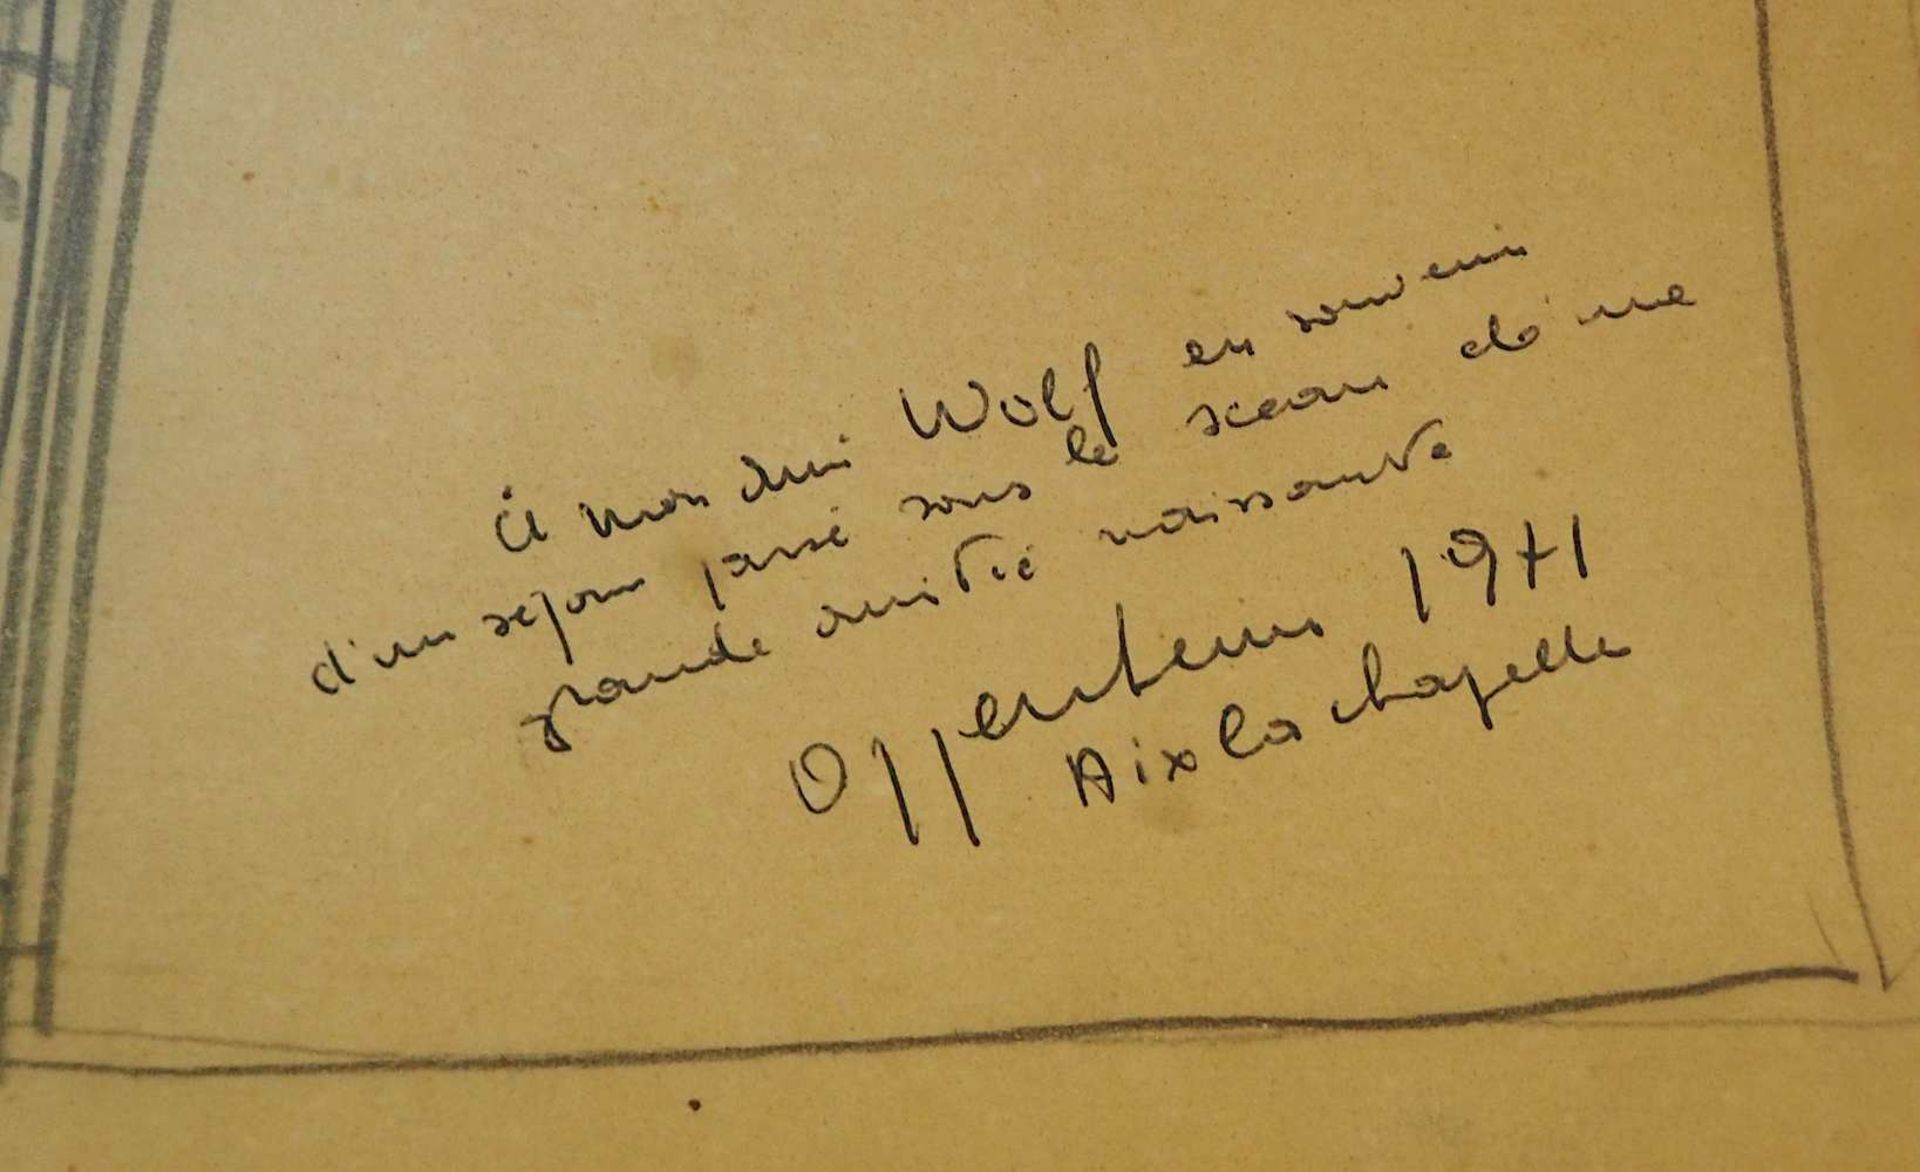 à mon ami Wolf en souvenir
d'un séjour passé sous le sceau d'une
grande amitié naissante
Offenheim 1971
Aix la chapelle